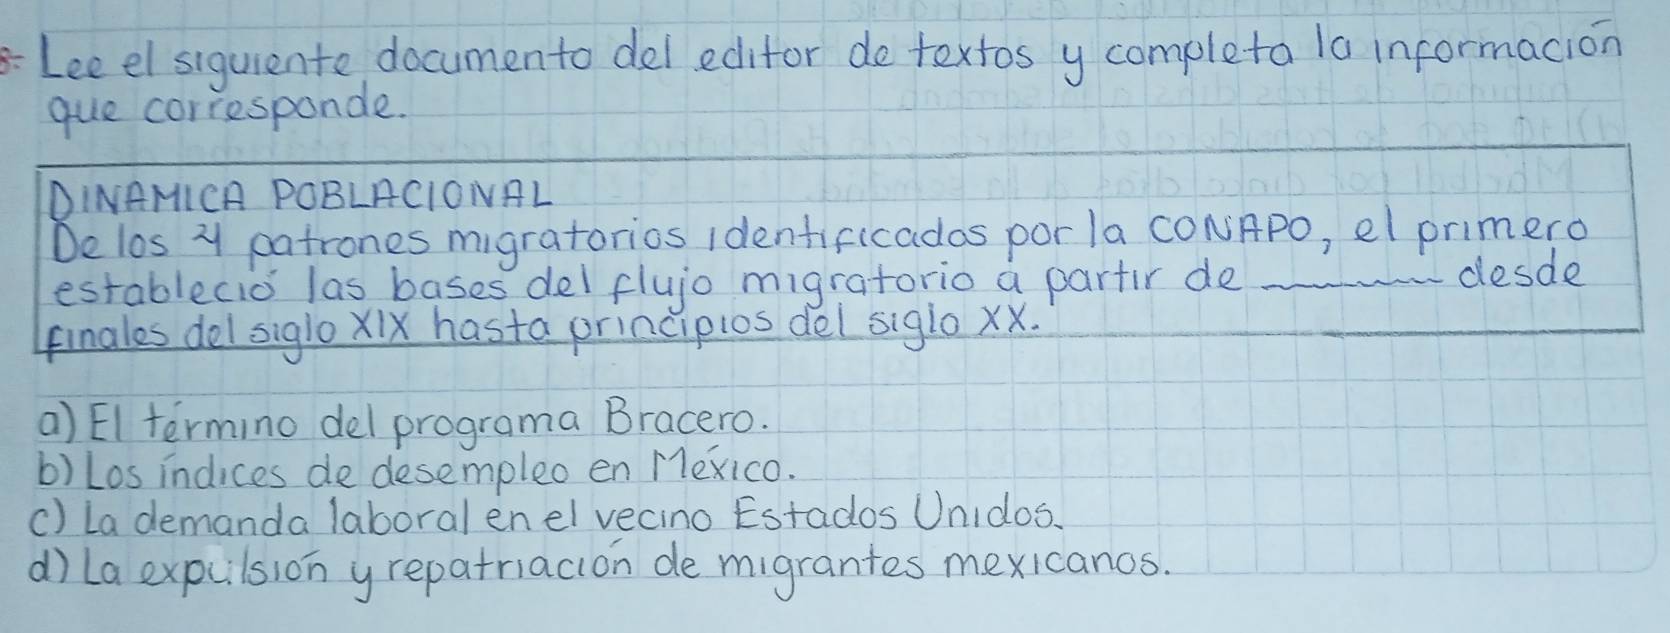 8- Lee el siguiente documento del editor de textos y completa la información
que corresponde.
DINAMICA POBLACIONAL
De los 4 patrones migratorios identificados por la CONAPO, el primero
estableció las bases del flujo migratorio a partir de ______ desde
finales del siglo XIX hasta principios del siglo XX.
a) El término del programa Bracero.
b) Los índices de desempleo en México.
c) La demanda laboral en el vecino Estados Unidos.
d) La expulsión y repatriación de migrantes mexicanos.